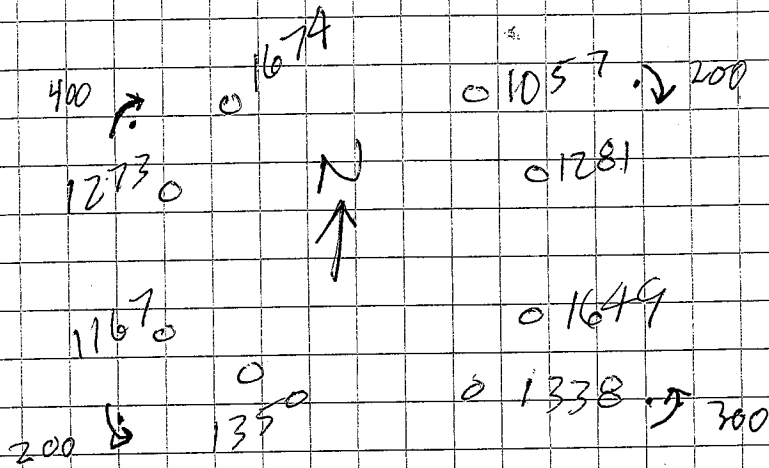 1674
400
1057
200
1273
N
1281
1167
1649
1350
1338
300
200